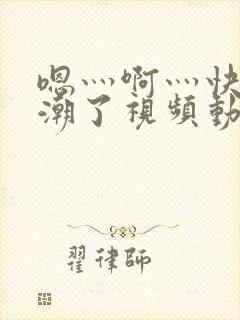 嗯灬啊灬快
潮了視頻動
翟律師